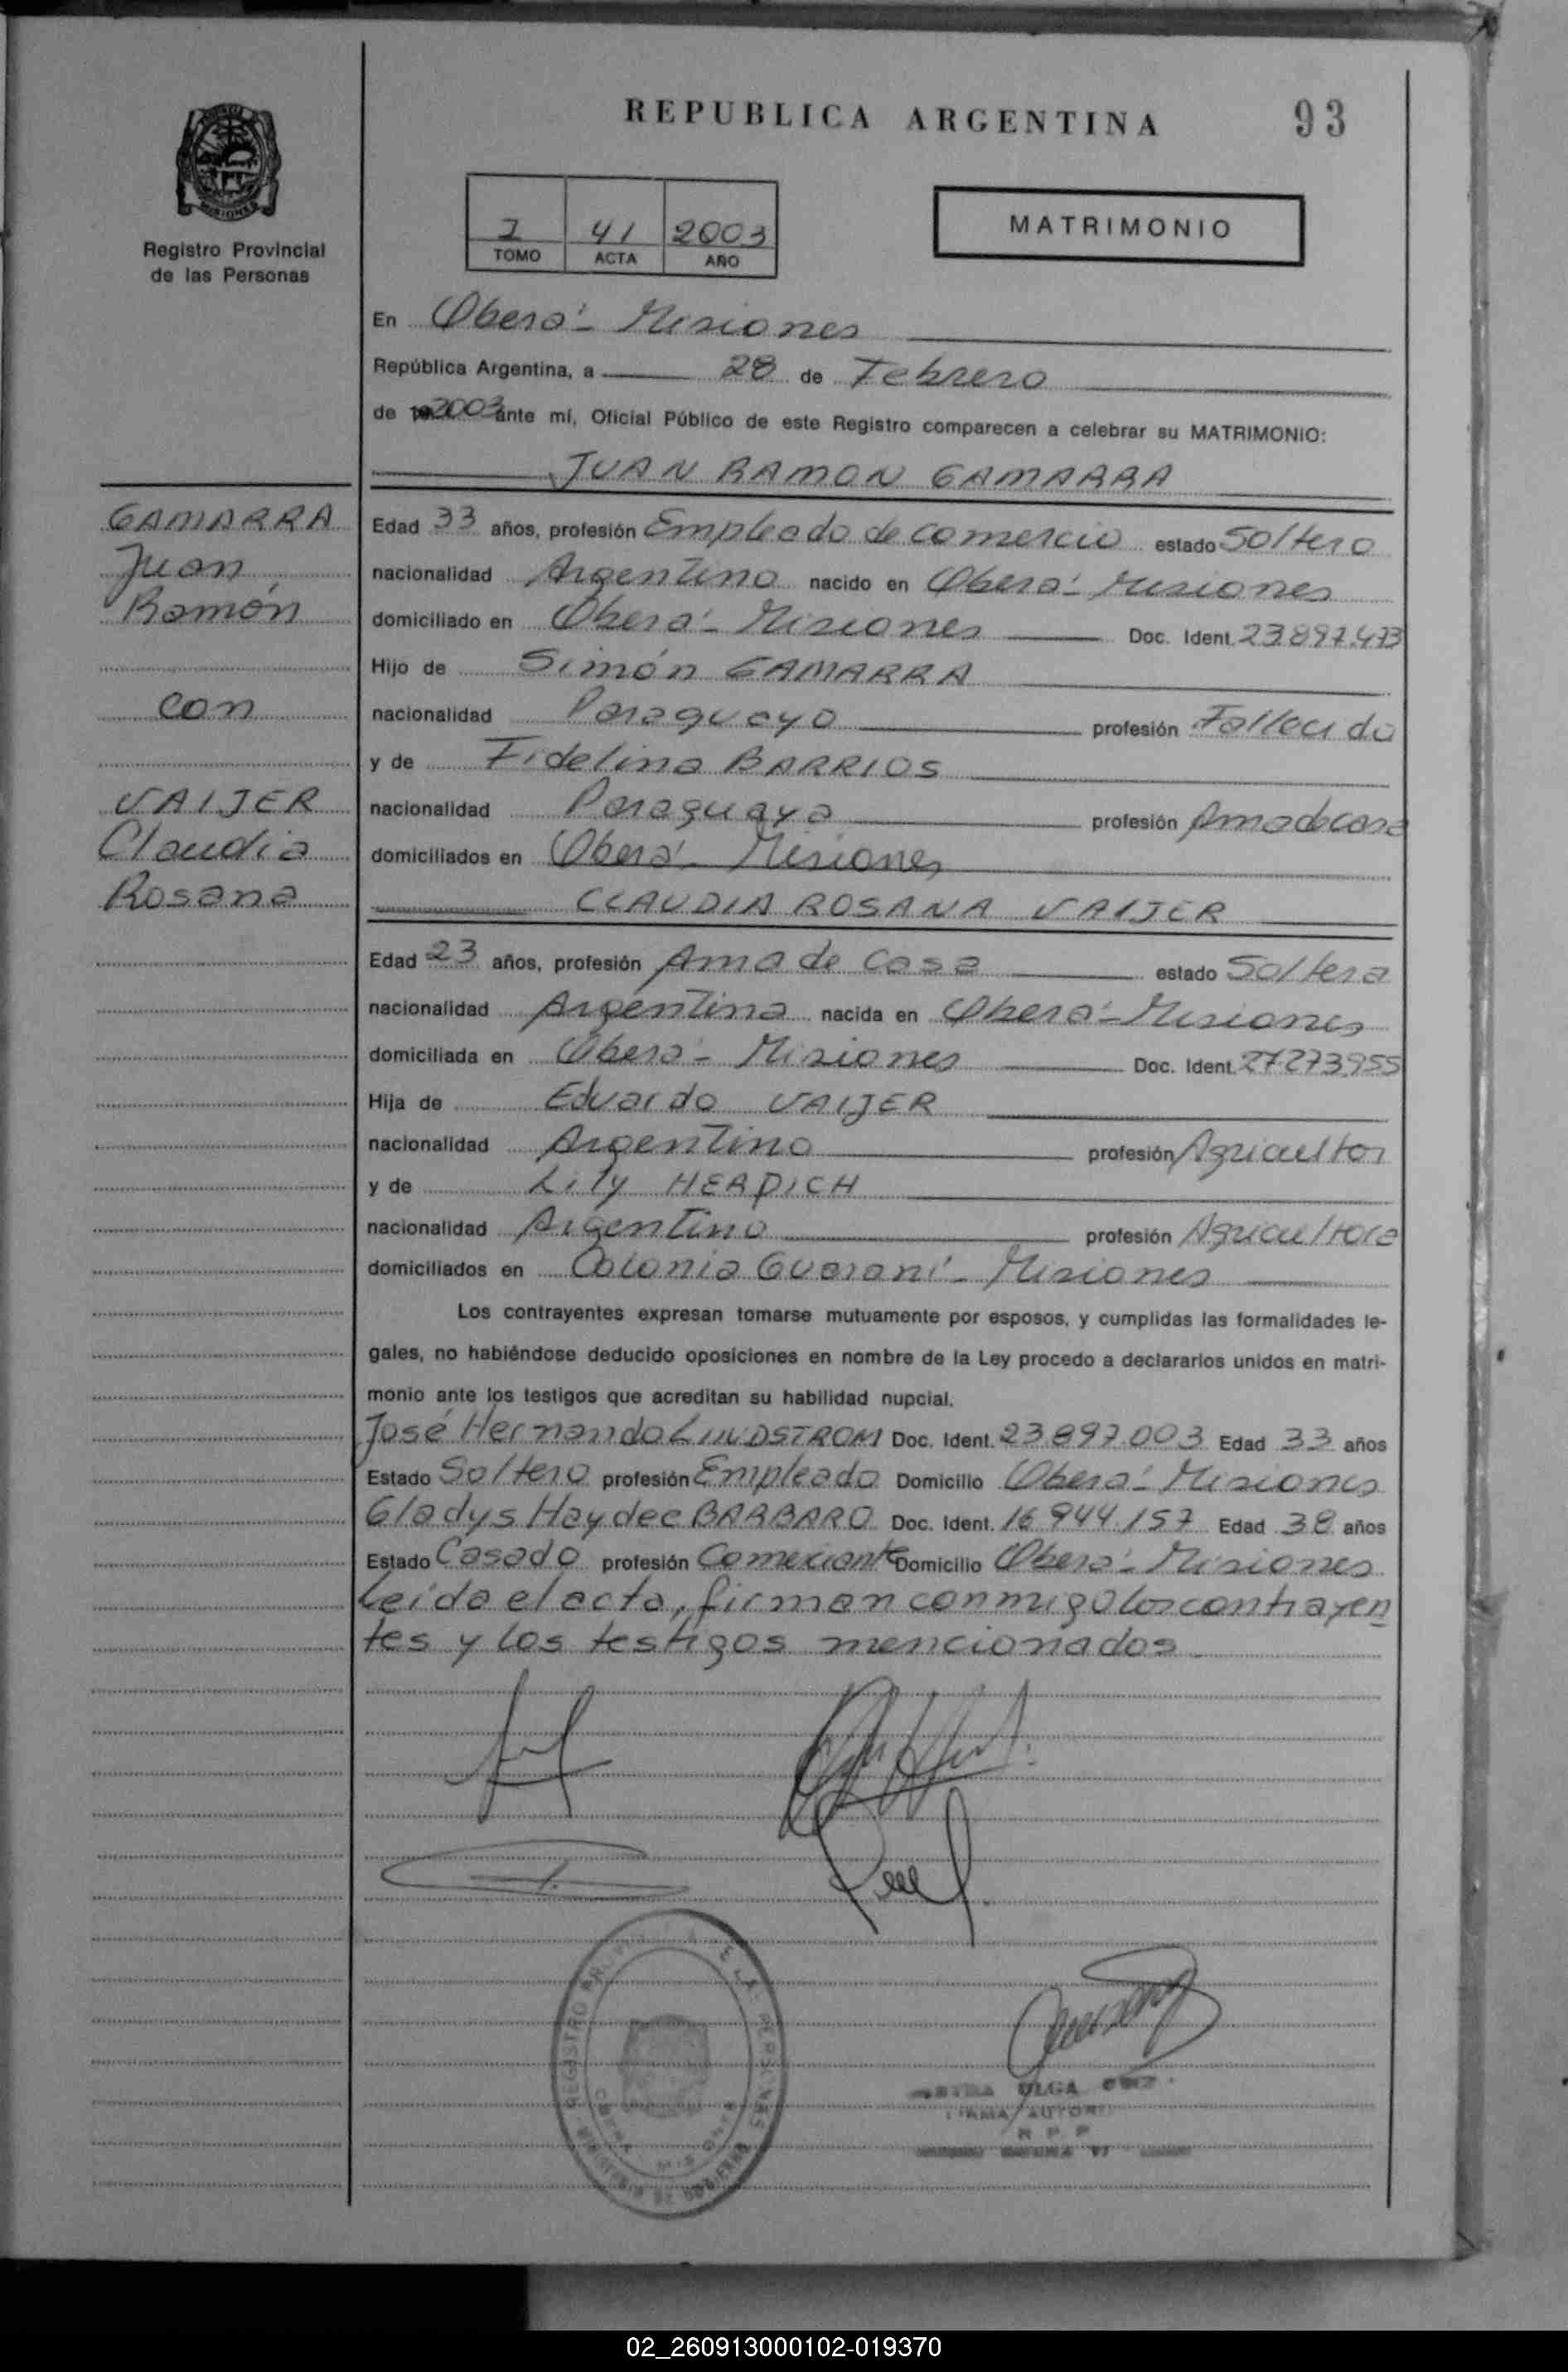 REPUBLICA ARGENTINA
93
MISIONES
Registro Provincial
de las Personas
I 41 2003
TOMO ACTA AÑO
MATRIMONIO
En Oberá - Misiones
República Argentina, a 28 de Febrero
de 2003 ante mí, Oficial Público de este Registro comparecen a celebrar su MATRIMONIO:
JUAN RAMON GAMARRA
GAMARRA
Juan
Ramón
con
VAIJER
Claudia
Rosana
Edad 33 años, profesión Empleado de comercio estado Soltero
nacionalidad Argentino nacido en Oberá - Misiones
domiciliado en Oberá - Misiones Doc. Ident. 23.897.473
Hijo de Simón GAMARRA
nacionalidad Paraguayo profesión Fallecido
y de Fidelina BARRIOS
nacionalidad Paraguaya profesión Ama de casa
domiciliados en Oberá - Misiones
CLAUDIA ROSANA VAIJER
Edad 23 años, profesión Ama de casa estado Soltera
nacionalidad Argentina nacida en Oberá - Misiones
domiciliada en Oberá - Misiones Doc. Ident. 27273955
Hija de Eduardo VAIJER
nacionalidad Argentino profesión Agricultor
y de Lily HERDICH
nacionalidad Argentina profesión Agricultora
domiciliados en Colonia Guaraní - Misiones
Los contrayentes expresan tomarse mutuamente por esposos, y cumplidas las formalidades le-
gales, no habiéndose deducido oposiciones en nombre de la Ley procedo a declararlos unidos en matri-
monio ante los testigos que acreditan su habilidad nupcial.
José Hernando LINDSTROM Doc. Ident. 23.897.003 Edad 33 años
Estado Soltero profesión Empleado Domicilio Oberá - Misiones
Gladys Haydee BARBARO Doc. Ident. 16.944.157 Edad 38 años
Estado Casada profesión Comerciante Domicilio Oberá - Misiones
Leída el acta, firman conmigo los contrayen
tes y los testigos mencionados
REGISTRO DE LAS PERSONAS
MINISTERIO DE GOBIERNO
OLGA
02_260913000102-019370